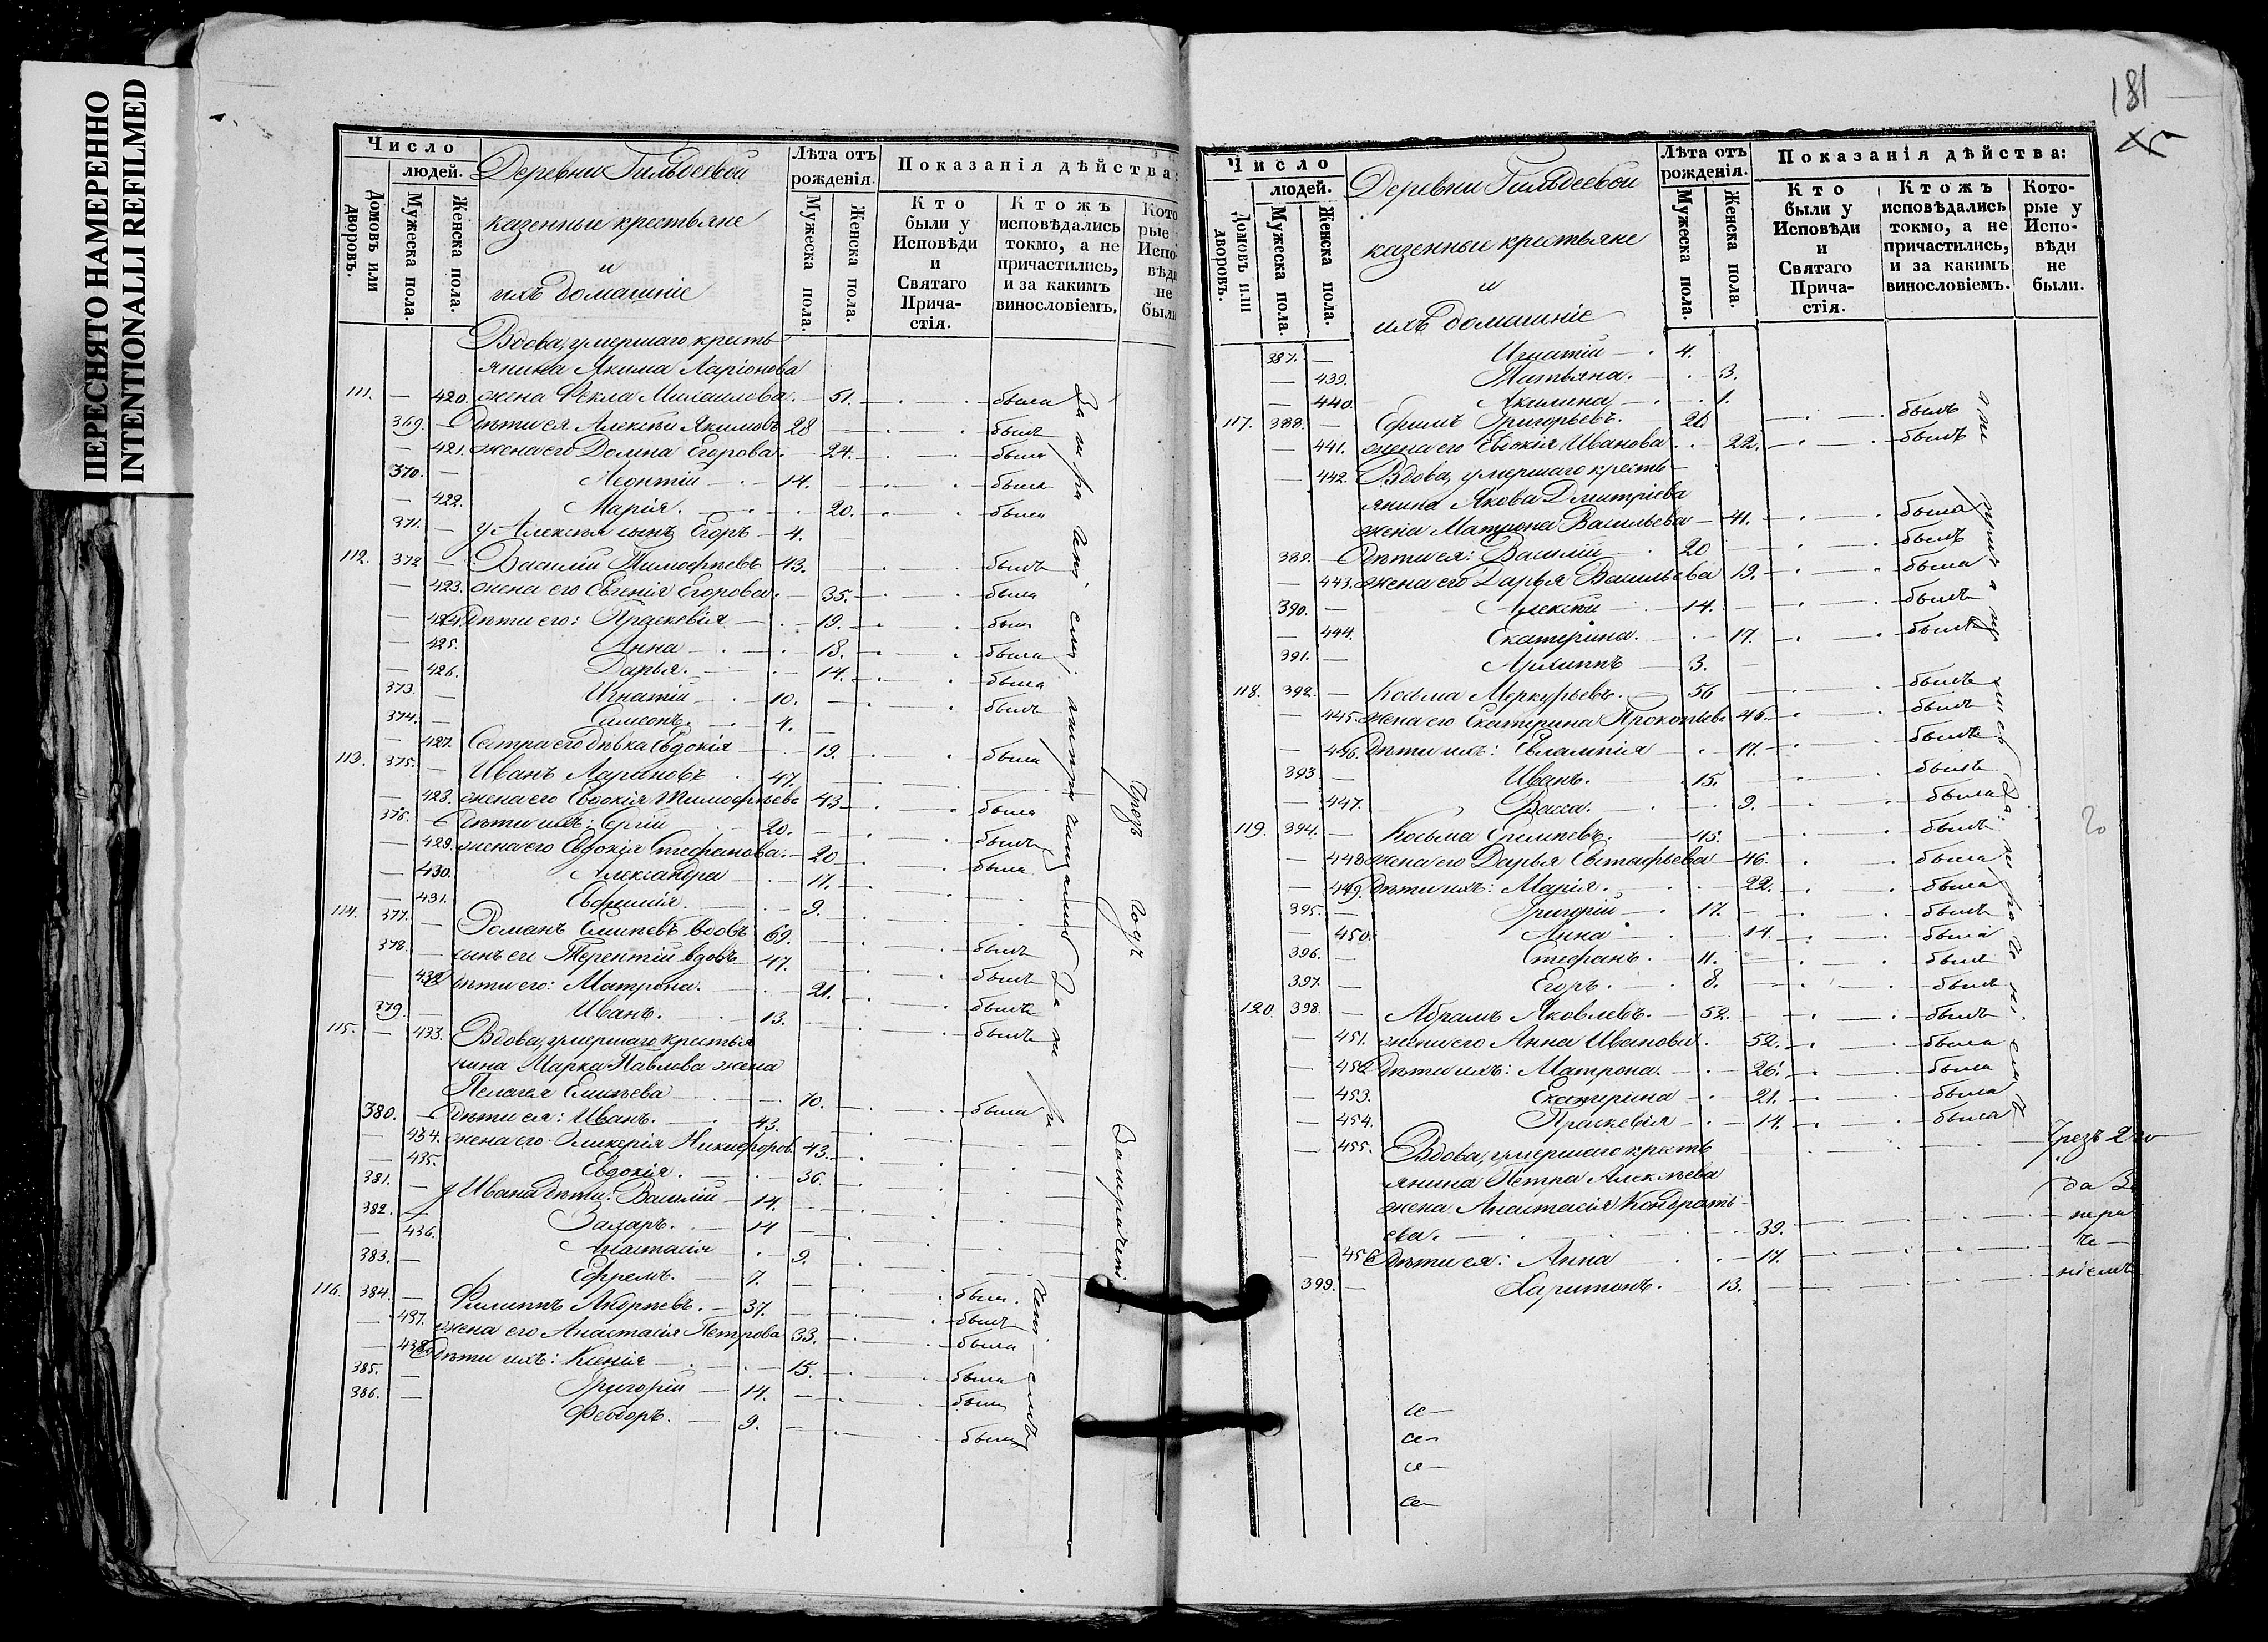 ПЕРЕСНЯТО НАМЕРЕННО
INTENTIONALLI REFILMED
Число
людей.
Домовъ или дворовъ.
Мужеска пола.
Женска пола.
Деревни Гильдеевой
казенные крестьяне
и
ихъ домашніе
Лѣта отъ рожденія.
Мужеска пола.
Женска пола.
Показанія дѣйства:
Кто были у Исповѣди и Святаго Прича-стія.
Ктожъ исповѣдались токмо, а не причастились, и за какимъ винословіемъ.
Кото рые Испо- вѣди не были
Вдова, умершаго кресть
янина Якима Ларіонова
111. — 420. жена Фекла Михаилова. — 51. была
369. — Дѣти ея Алексѣй Якимовъ 28 былъ
— 421. жена его Домна Егорова. 24. была
370. — Леонтій — 14. былъ
— 422. Марія. — 20. была
371. — у Алексѣя сынъ Егоръ — 4.
112. 372 — Василій Тимофѣевъ 43. былъ
— 423. жена его Евгенія Егорова. — 35. была
— 424. Дѣти его: Праскевія — 19. была
— 425. Анна — 18. была
— 426. Дарья. — 14. была
373. — Игнатій — 10. былъ
374. — Симеонъ. — 4.
— 427. Сестра его дѣвка Евдокія — 19. была
113. 375. — Иванъ Ларіоновъ 47.
— 428. жена его Евдокія Тимофѣева 43. была
376. — Дѣти ихъ: Сергій 20. былъ
— 429. жена его Евдокія Стефанова. — 20 была
— 430. Александра — 17.
— 431. Евфимія. — 9.
114. 377. — Романъ Емиліевъ вдовъ 69. былъ
378. — сынъ его Терентій вдовъ 47. былъ
— 432. Дѣти его: Матрона. — 21. была
379. — Иванъ. 13. былъ
115. — 433. Вдова, умершаго крестья
нина Марка Павлова жена
Пелагея — 70. была
380. — Дѣти ея: Иванъ. — 43.
— 434. жена его Гликерія Никифоров. 43.
— 435. Евдокія. — 36.
381. — у Ивана дѣти: Василій — 14.
382. — Захаръ. — 14
— 436. Анастасія — 9.
383. — Ефремъ. — 7.
116. 384. — Филиппъ — 37. былъ
— 437. жена его Анастасія Петрова 33. была
— 438. Дѣти ихъ: Ксенія — 15. была
385. — Григорій — 14. былъ
386. — Феодоръ. — 9. былъ
Чрезъ годъ
181
Число
людей.
Домовъ или дворовъ.
Мужеска пола.
Женска пола.
Деревни Гильдеевой
казенные крестьяне
и
ихъ домашніе
Лѣта отъ рожденія.
Мужеска пола.
Женска пола.
Показанія дѣйства:
Кто были у Исповѣди и Святаго Прича-стія.
Ктожъ исповѣдались токмо, а не причастились, и за какимъ винословіемъ.
Кото-рые у Испо-вѣди не были.
387. — Игнатій — 4.
— 439. Татьяна. — 3.
— 440. Акилина — 1.
117. 388. — Ефимъ Григорьевъ. 26 былъ
— 441. жена его Евдокія Иванова. 22. была
— 442. Вдова, умершаго кресть-
янина Якова Дмитріева
жена Матрона Васильева — 41. была
389. — Дѣти ея: Василій — 20 былъ
— 443. жена его Дарья Васильева 19. была
390. — Алексѣй — 14. былъ
— 444. Екатерина. — 17. была
391. — Архиппъ — 3.
118. 392. — Козьма Меркурьевъ. 56 былъ
— 445. жена его Екатерина Прокопьев. 46. была
— 446. Дѣти ихъ: Евлампія — 17. была
393. — Иванъ. — 15. былъ
— 447. Васса. — 9. была
119. 394. — Козьма — 45. былъ
— 448. жена его Дарья Евстафьева — 46. была
— 449. Дѣти ихъ: Марія. — 22. была
395. — Григорій — 17. былъ
— 450. Анна — 14. была
396. — Стефанъ. — 11. былъ
397. — Егоръ. — 8. былъ
120. 398. — Абрамъ Яковлевъ. — 52. былъ
— 451. жена его Анна Иванова. 52. была
— 452. Дѣти ихъ: Матрона. — 26. была
— 453. Екатерина — 21. была
— 454. Праскевія — 14. была
— 455. Вдова, умершаго кресть
янина Петра Алексѣева
жена Анастасія Кондрать-
ева. — 39.
— 456. Дѣти ея: Анна — 17.
399. — Харитонъ. — 13.